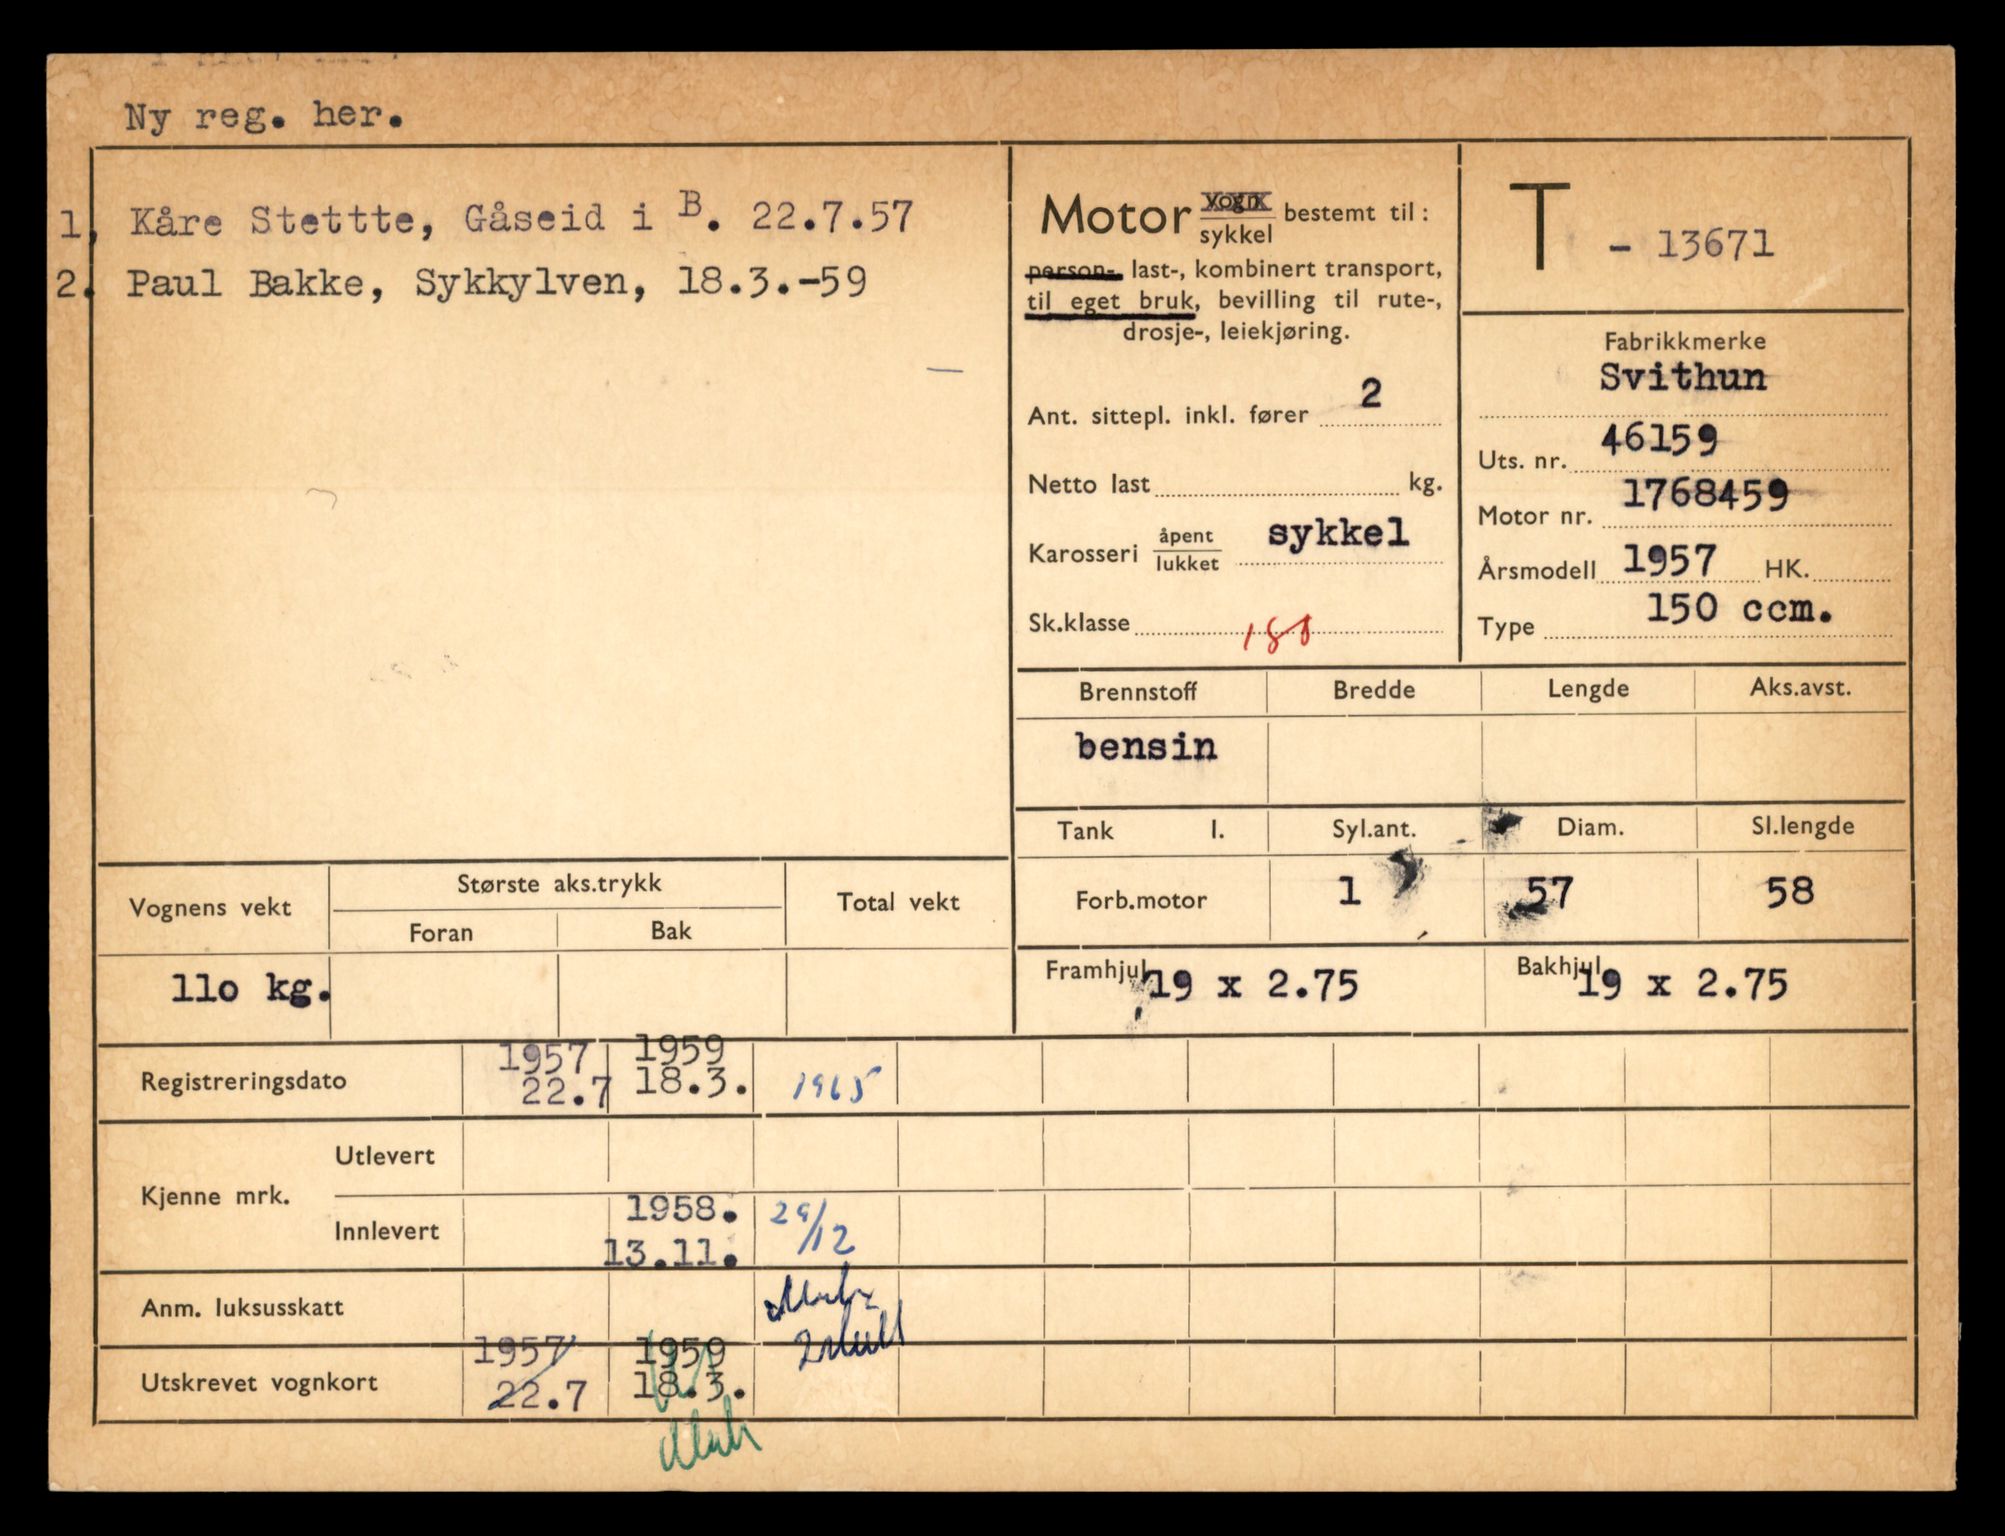 Ny reg. her.
1, Kåre Stettte, Gåseid i B. 22.7.57
2. Paul Bakke, Sykkylven, 18.3.-59
Motor vogn sykkel bestemt til:
person-, last-, kombinert transport,
til eget bruk, bevilling til rute-,
drosje-, leiekjøring.
Ant. sittepl. inkl. fører 2
Netto last kg.
Karosseri åpent lukket sykkel
Sk.klasse
T - 13671
Fabrikkmerke
Svithun
Uts. nr. 46159
Motor nr. 1768459
Årsmodell 1957 HK.
Type 150 ccm.
Brennstoff Bredde Lengde Aks.avst.
bensin
Tank l. Syl.ant. Diam. Sl.lengde
Forb.motor 1 57 58
Framhjul 19 x 2.75 Bakhjul 19 x 2.75
Vognens vekt Største aks.trykk Total vekt
Foran Bak
110 kg.
Registreringsdato 1957 22.7 1959 18.3. 1965
Kjenne mrk. Utlevert
Innlevert 1958. 13.11. 29/12
Anm. luksusskatt
Utskrevet vognkort 1957 22.7 1959 18.3.